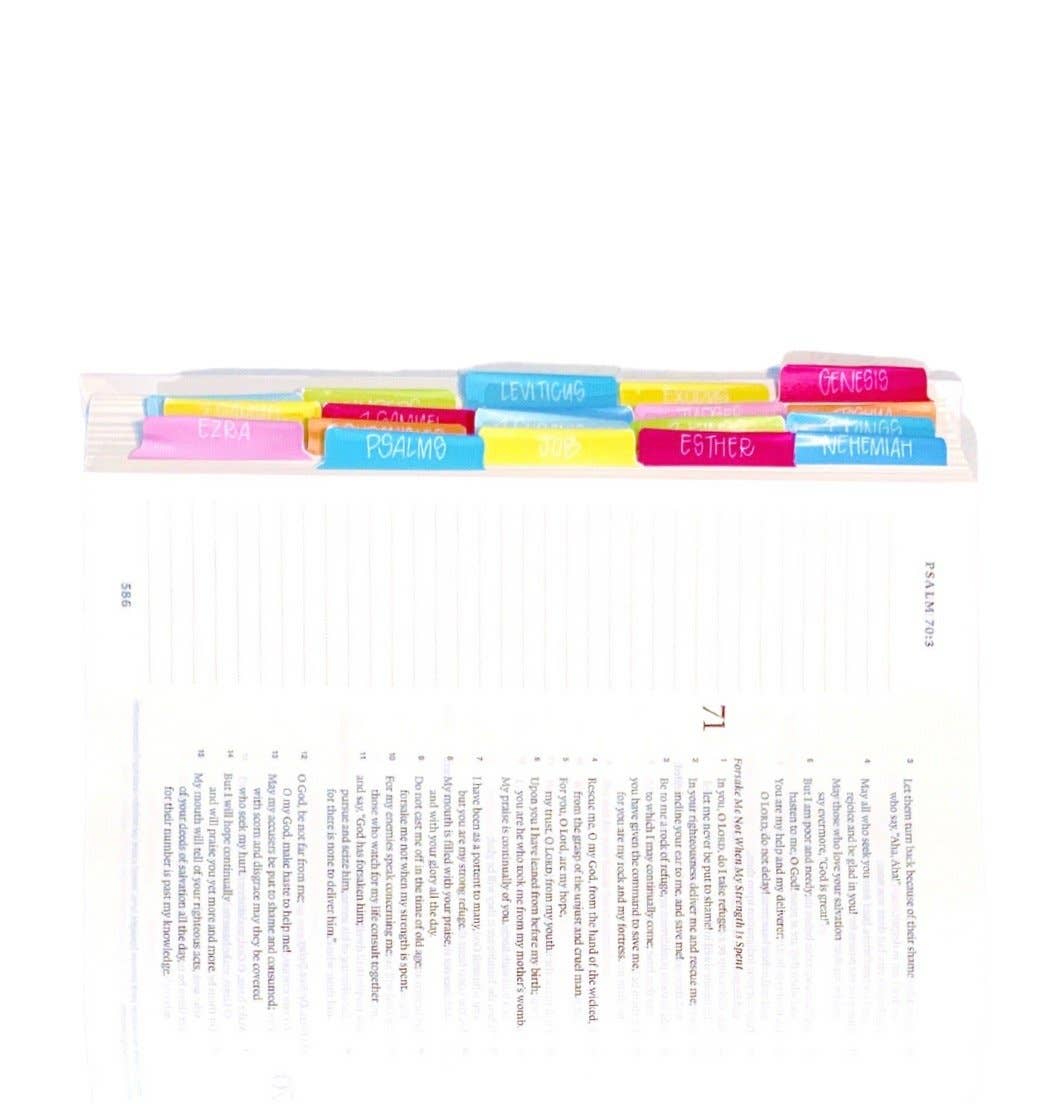 GENESIS
LEVITICUS
EXODUS
EZRA
PSALMS
JOB
ESTHER
NEHEMIAH
PSALM 70:3
586
3 Let them turn back because of their shame
who say, "Aha, Aha!"
4 May all who seek you
rejoice and be glad in you!
May those who love your salvation
say evermore, "God is great!"
5 But I am poor and needy;
hasten to me, O God!
You are my help and my deliverer;
O LORD, do not delay!
71
Forsake Me Not When My Strength Is Spent
1 In you, O LORD, do I take refuge;
let me never be put to shame!
2 In your righteousness deliver me and rescue me;
incline your ear to me, and save me!
3 Be to me a rock of refuge,
to which I may continually come;
you have given the command to save me,
for you are my rock and my fortress.
4 Rescue me, O my God, from the hand of the wicked,
from the grasp of the unjust and cruel man.
5 For you, O Lord, are my hope,
my trust, O LORD, from my youth.
6 Upon you I have leaned from before my birth;
you are he who took me from my mother's womb.
My praise is continually of you.
7 I have been as a portent to many,
but you are my strong refuge.
8 My mouth is filled with your praise,
and with your glory all the day.
9 Do not cast me off in the time of old age;
forsake me not when my strength is spent.
10 For my enemies speak concerning me;
those who watch for my life consult together
11 and say, "God has forsaken him;
pursue and seize him,
for there is none to deliver him."
12 O God, be not far from me;
O my God, make haste to help me!
13 May my accusers be put to shame and consumed;
with scorn and disgrace may they be covered
who seek my hurt.
14 But I will hope continually
and will praise you yet more and more.
15 My mouth will tell of your righteous acts,
of your deeds of salvation all the day,
for their number is past my knowledge.